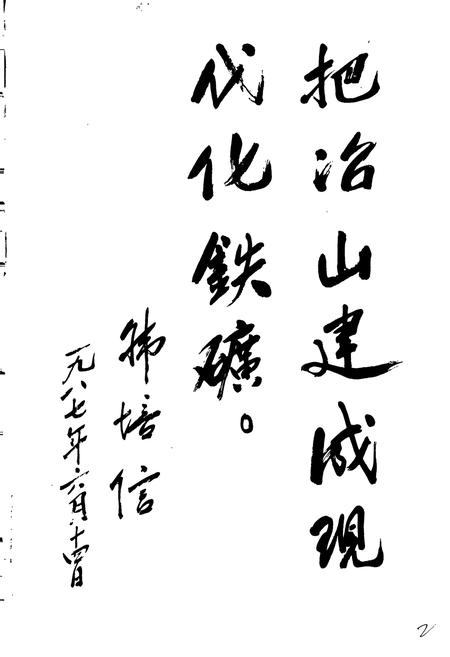 把冶山建成现
代化鉄礦。
韩培信
一九八七年六月十四日
2